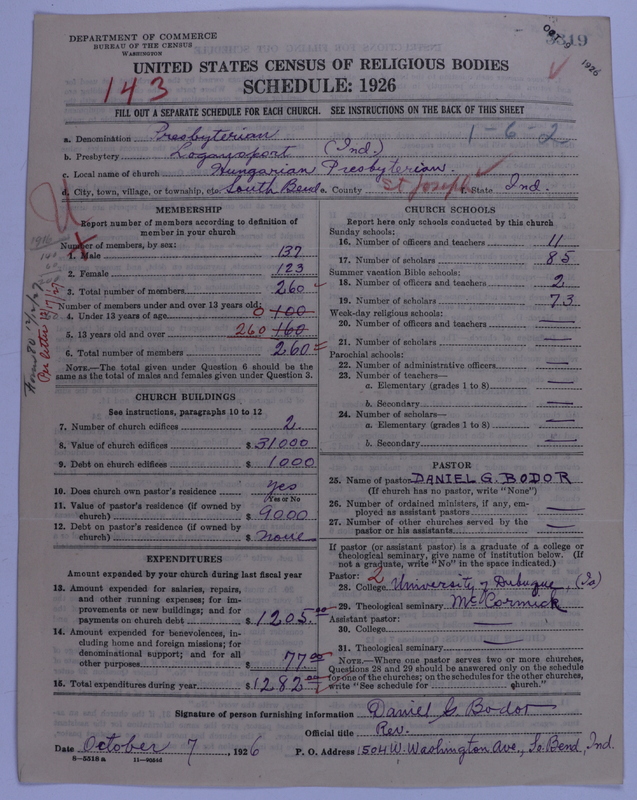 DEPARTMENT OF COMMERCE
BUREAU OF THE CENSUS
WASHINGTON
OCT 9 1926
UNITED STATES CENSUS OF RELIGIOUS BODIES
SCHEDULE: 1926
143
FILL OUT A SEPARATE SCHEDULE FOR EACH CHURCH. SEE INSTRUCTIONS ON THE BACK OF THIS SHEET
a. Denomination Presbyterian
1-6-2
b. Presbytery Logansport (Ind.)
c. Local name of church Hungarian Presbyterian.
d. City, town, village, or township, etc. South Bend e. County St Joseph f. State Ind.
MEMBERSHIP
Report number of members according to definition of
member in your church
Number of members, by sex:
1. Male 137
2. Female 123
3. Total number of members 260
Number of members under and over 13 years old:
4. Under 13 years of age 0 100
5. 13 years old and over 260 160
6. Total number of members 260
NOTE.—The total given under Question 6 should be the
same as the total of males and females given under Question 3.
Form 80 12/12/27
Per letter 12/17/27
CHURCH BUILDINGS
See instructions, paragraphs 10 to 12
7. Number of church edifices 2
8. Value of church edifices $31000
9. Debt on church edifices $1000
10. Does church own pastor's residence yes
Yes or No
11. Value of pastor's residence (if owned by
church) $9000
12. Debt on pastor's residence (if owned by
church) $none
EXPENDITURES
Amount expended by your church during last fiscal year
13. Amount expended for salaries, repairs,
and other running expenses; for im-
provements or new buildings; and for
payments on church debt $1205.00
14. Amount expended for benevolences, in-
cluding home and foreign missions; for
denominational support; and for all
other purposes $77.00
15. Total expenditures during year $1282.00
CHURCH SCHOOLS
Report here only schools conducted by this church
Sunday schools:
16. Number of officers and teachers 11
17. Number of scholars 85
Summer vacation Bible schools:
18. Number of officers and teachers 2
19. Number of scholars 73
Week-day religious schools:
20. Number of officers and teachers —
21. Number of scholars —
Parochial schools:
22. Number of administrative officers —
23. Number of teachers—
a. Elementary (grades 1 to 8) —
b. Secondary —
24. Number of scholars—
a. Elementary (grades 1 to 8) —
b. Secondary —
PASTOR
25. Name of pastor DANIEL G. BODOR
(If church has no pastor, write "None")
26. Number of ordained ministers, if any, em-
ployed as assistant pastors —
27. Number of other churches served by the
pastor or his assistants —
If pastor (or assistant pastor) is a graduate of a college or
theological seminary, give name of institution below. (If
not a graduate, write "No" in the space indicated.)
Pastor: 2
28. College University of Dubuque, (Ia)
29. Theological seminary McCormick
Assistant pastor:
30. College —
31. Theological seminary —
NOTE.—Where one pastor serves two or more churches,
Questions 28 and 29 should be answered only on the schedule
for one of the churches; on the schedules for the other churches,
write "See schedule for church."
Signature of person furnishing information Daniel G. Bodor
Official title Rev.
Date October 7, 1926 P. O. Address 1504 W. Washington Ave., So. Bend, Ind.
8—5518 a